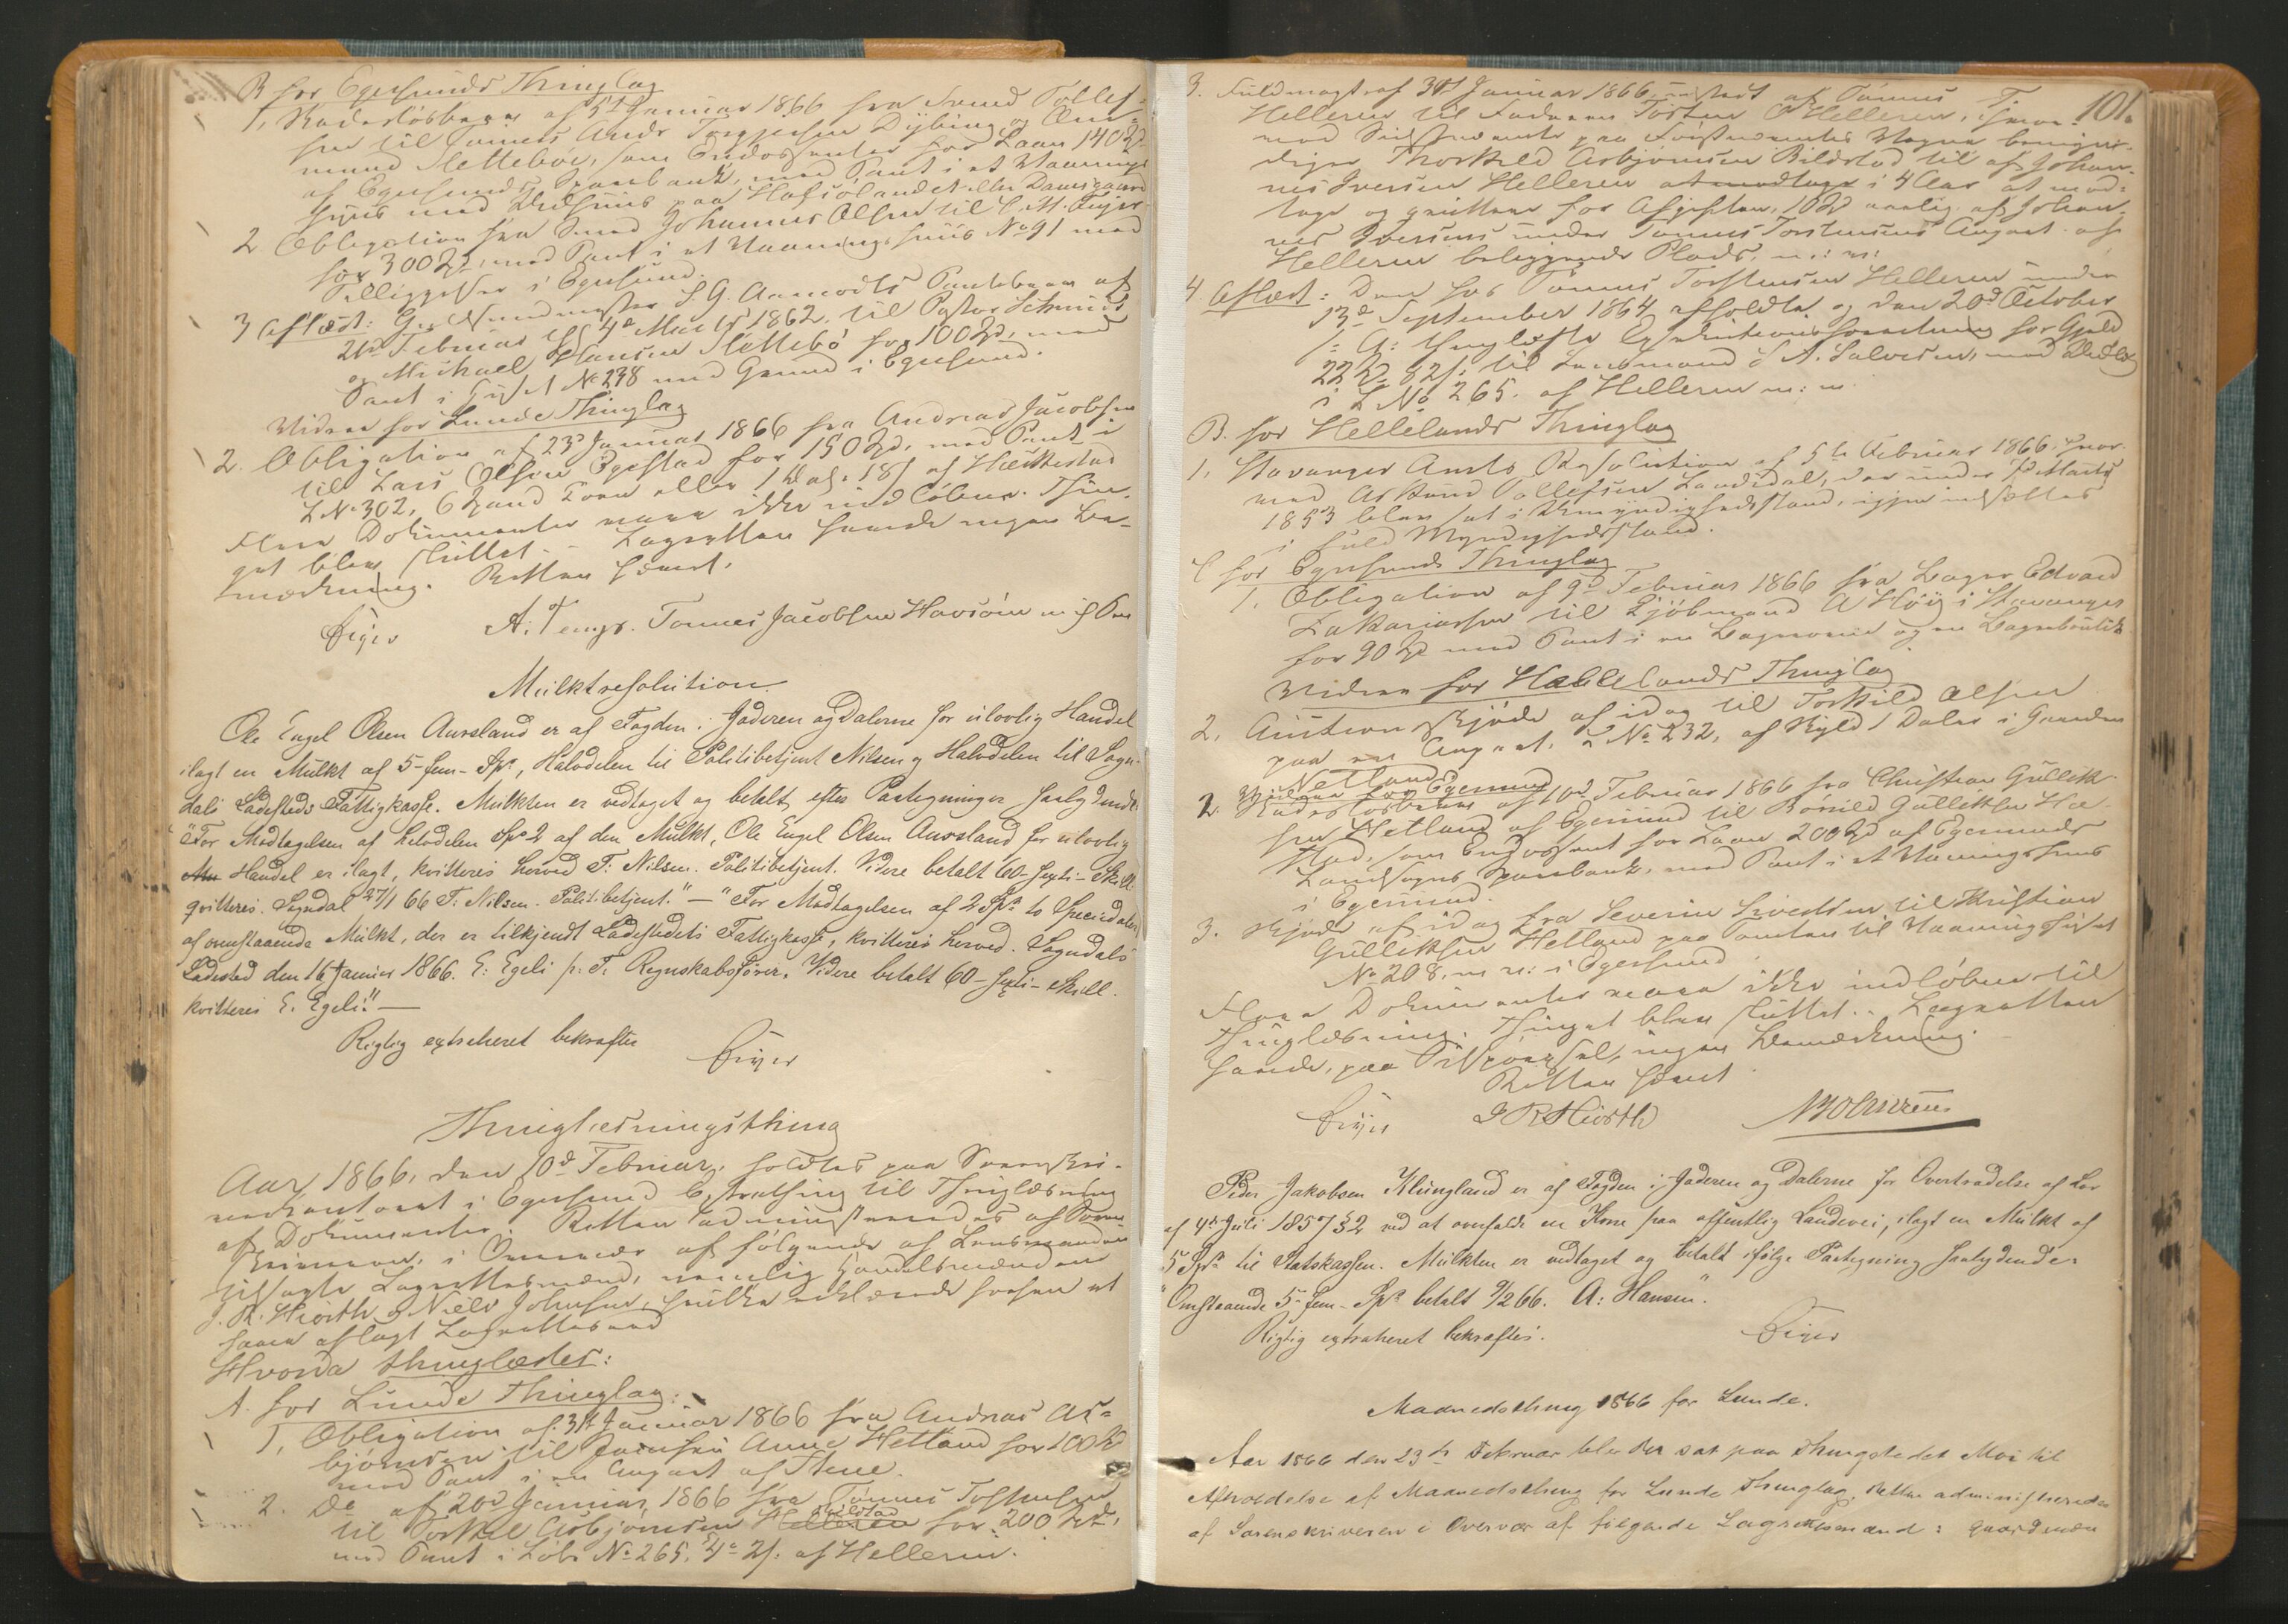 B for Egersunds Thinglag
1, Kadesløsbrev af 5te Januar 1866 fra Svend Tollef-
sen til Tønnes Andr Torgersen Dybing og Am-
mund Slettebøe, som Endossenter for Laan 140 Spd
af Egersunds Sparebank, med Pant i et Vaanings-
huus med Udhuus paa Hafsølandet eller Damsgaard
2 Obligation fra Smed Johannes Olsen til C. M.
for 300 Spd, med Pant i et Vaaningshuus No 91 med
Tilliggelser i Egersund.
3 Aflæst: S. G. Aamodts Pantebrev af
21de Februar 1862, til Pastor Schmidt
og Michael Hansen Slettebø for 100 Spd, med
Pant i Huset No 238 med Grund i Egersund.
Videre for Lunde Thinglag
2. Obligation af 23de Januar 1866 fra Andreas Jacobsen
til Lars Olsen Egestad for 150 Spd, med Pant i
L No 302, 6 Spand Korn eller 1 Daler 18 s af Hæstestad
Flere Dokumenter vare ikke indløbne. Thin-
get blev sluttet. Lagretten havde ingen Be-
mærkning. Retten hævet.
Feyer A. Tengs. Tønnes Jacobsen Havsøen m i P
Mulktresolution.
Ole Engel Olsen Aursland er af Fogden i Jæderen og Dalerne for ulovlig Handel
ilagt en Mulkt af 5-fem-Spd, Halvdelen til Politibetjent Nilsen og Halvdelen til Sogn-
dals Ladesteds Fattigkasse. Mulkten er vedtaget og betalt, efter Paategninger saalydende:
"For Modtagelsen af Halvdelen Spd 2 af den Mulkt, Ole Engel Olsen Aursland for ulovlig
Handel er ilagt, kvitteres herved T. Nilsen. Politibetjent. Videre betalt 60-sexti-Skill
qvitteres. Sogndal 27/1 66 T. Nilsen. Politibetjent." — "For Modtagelsen af 2 Spd to Speciedaler
af omstaaende Mulkt, der er tilkjendt Ladestedets Fattigkasse, kvitteres herved. Sogndals
Ladested den 16 Januar 1866. E. Egeli p. t. Regnskabsfører. Videre betalt 60-sexti-Skill.
kvitteres E. Egeli." —
Rigtig extraheret bekræfter
Feyer
Thinglæsningsthing
Aar 1866, den 10de Februar, holdtes paa Sorenskri-
verkontoret i Egersund Extrathing til Thinglæsning
af Dokumenter. Retten administreredes af Soren-
skriveren, i Overvær af følgende af Lensmanden
tilsagte Lagrettesmænd, nemlig Handelsmændene
J. R. Hiorth og Niels Johnsen, hvilke erklærede forhen at
have aflagt Lagrettesed
Hvorda thinglæstes:
A. for Lunde Thinglag.
1, Obligation af 31te Januar 1866 fra Andreas As-
bjørnsen til Anne Hetland for 100 Spd
med Pant i en Anpart af Stene.
2. Do af 20de Januar 1866 fra Tønnes Tostensen
til Torkel Asbjørnsen Helleren Bilstad for 200 Spd,
med Pant i Løbe No 265, af Helleren.
101.
3. Fuldmagt af 31te Januar 1866, udstedt af Tønnes T.
Helleren til Faderen Tosten O Helleren, hvor-
ved Sidstnævnte paa Førstnævntes Vegne bemyn-
diger Thorkild Asbjørnsen Bildstad til af Johan-
nes Iversen Helleren at modtage i 4 Aar at mod-
tage og qvittere for Afgiften, 10 Spd aarlig af Johan-
nes Iversens under Tønnes Torstensens Anpart af
Helleren beliggende Plads, m: m:
4. Aflæst: Den hos Tønnes Torstensen Helleren under
13de September 1864 afholdte og den 20de October
s: A: thinglæste Exekutionsforretning for Gjeld
22 Spd 82 s: til Lensmand S A. Salvesen, med Udlæg
i L No 265. af Helleren m: m
B. for Hellelands Thinglag
1, Stavanger Amts Resolution af 5te Februar 1866, hvor-
ved Asbjørn Tollefsen Landsdal, der under 7de Marts
1853 blev sat i Umyndighedsstand, igjen indsættes
i fuld Myndighedsstand.
C for Egersunds Thinglag
1, Obligation af 9de Februar 1866 fra Bager Edvard
Zakariassen til Kjøbmand A Høy i Stavanger
for 90 Spd med Pant i en Bagerovn og en Bagerboutik
Videre for Hellelands Thinglag
2, Auctionsskjøde af idag til Torkild Olsen
paa en Anpart, L No 232, af Skyld 1 Daler i Gaarden
Netland
Videre for Egersund
2. Kadesløsbrev af 10de Februar 1866 fra Christian Gullik-
sen Hetland af Egersund til Børild Gulliksen He-
stad, som Endossent for Laan 200 Spd af Egersunds
Landsogns Sparebank, med Pant i et Vaaningshuus
i Egersund.
3. Skjøde af idag fra Severin Sivertsen til Kristian
Gulliksen Hetland paa Tomten til Vaaningshuset
No 208, m m: i Egersund
Flere Dokumenter vare ikke indløbne til
Thinglæsning. Thinget blev sluttet. Lagretten
havde, paa Tilspørgsel, ingen Bemærkning
Retten hævet
Feyer J R Hiorth N Johnsen
Peder Jakobsen Klungland er af Fogden i Jæderen og Dalerne for Overtrædelse af Lov
af 4de Juli 1857 § 32 ved at omhalde en Kone paa offentlig Landevei, ilagt en Mulkt af
5 Spd til Statskassen. Mulkten er vedtaget og betalt ifølge Paategning saalydende:
"Omstaaende 5-fem-Spd betalt 9/2 66. A: Hansen".
Rigtig extraheret bekræftes.
Feyer
Maanedsthing 1866 for Lunde.
Aar 1866 den 23de Februar blev Ret sat paa Thingstedet Moi til
Afholdelse af Maanedsthing for Lunde Thinglag. Retten administreredes
af Sorenskriveren i Overvær af følgende Lagrettesmænd: Gaardmænd